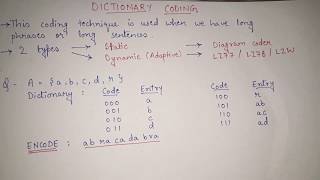 DICTIONARY CODING
→ This coding technique is used when we have long
phrases or long sentences.
→ 2 types → Static → Diagram coder
→ Dynamic (Adaptive) → LZ77 / LZ78 / LZW
Q- A = {a, b, c, d, r}
Dictionary : Code Entry Code Entry
000 a 100 r
001 b 101 ab
010 c 110 ac
011 d 111 ad
ENCODE : ab ra ca da bra